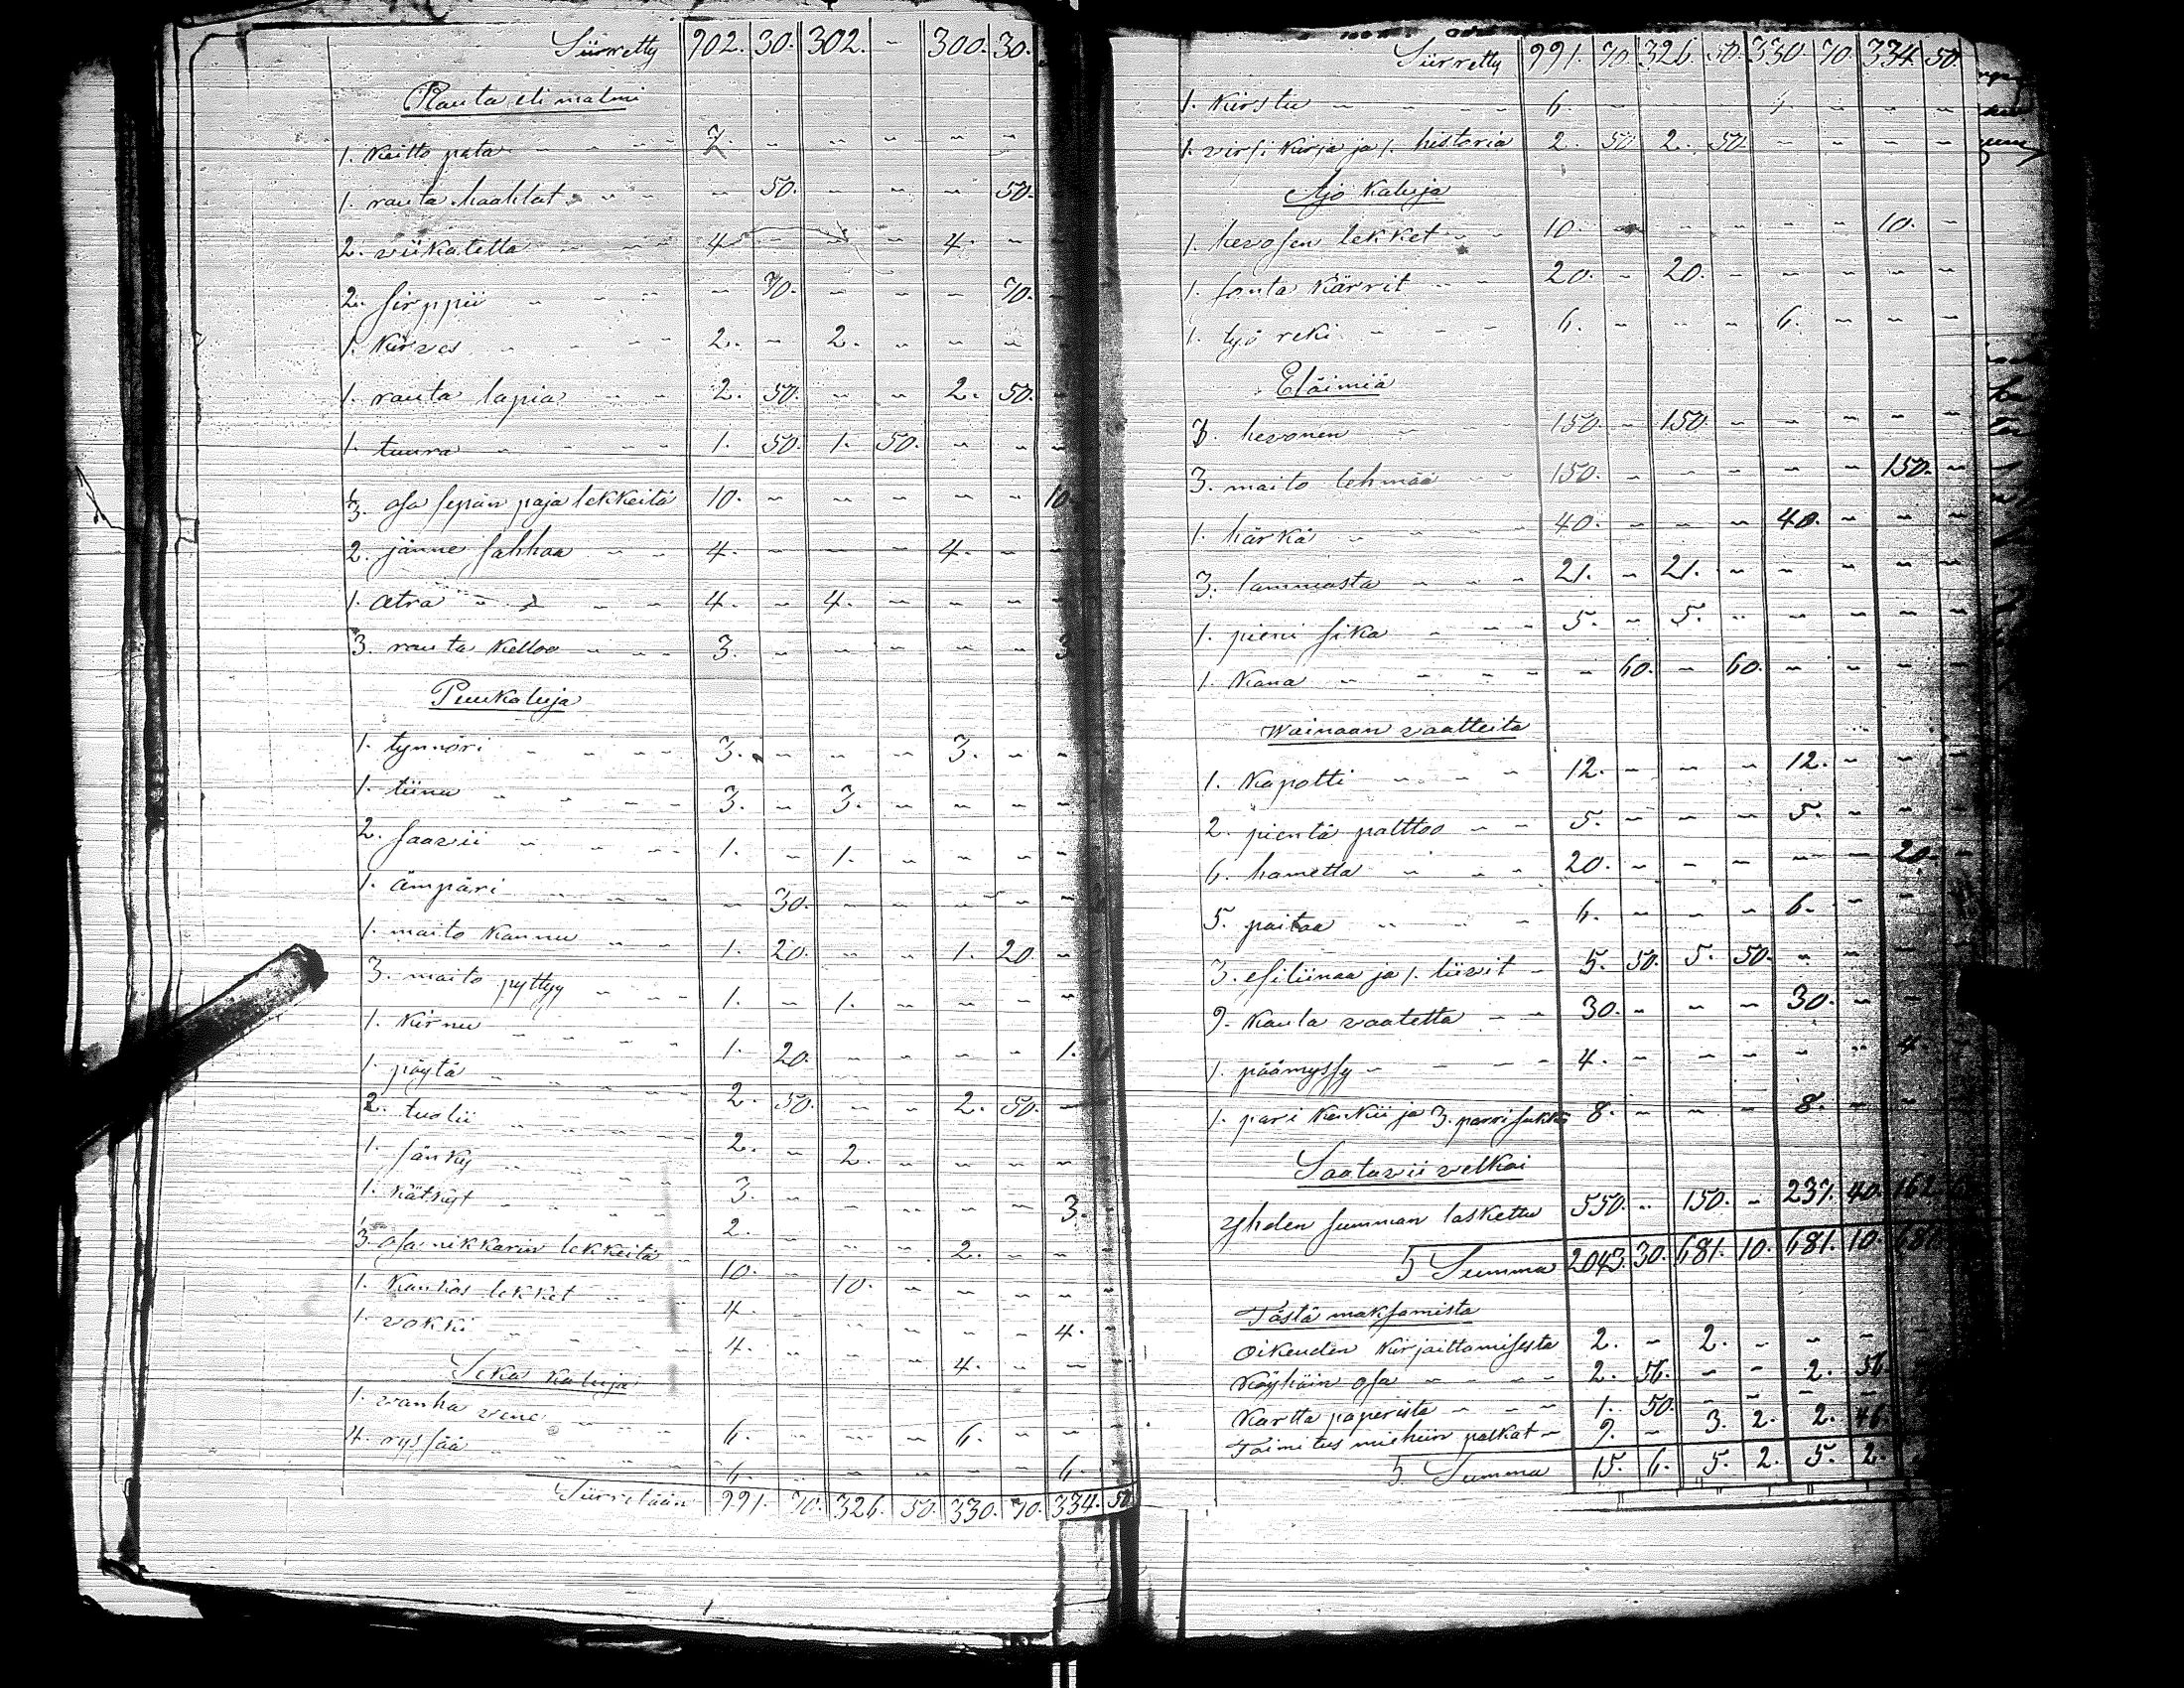 Siirretty 902. 30. 302. - 300. 30.
Rauta eli malmi
1. Keitto pata - - - - 7. - - - - -
1. rauta haahlat - - - - 50. - - - 50. -
2. viikatetta - - - 4. - - - 4. - -
2. sirppii - - - - 70. - - - 70. -
1. Kirves - - - - 2. - 2. - - - -
1. rauta lapia - - 2. 50. - - 2. 50. -
1. tuura - - - - 1. 50. 1. 50. - - -
1/3. osa sepän paja lekkeitä 10. - - - - - 10.
2. jänne sahhaa - - 4. - - - 4. - -
1. atra - - - - 4. - 4. - - - -
3. rauta Kelloo - - - 3. - - - - - 3
Puukaluja
1. tynnöri - - - - 3. - - - 3. - -
1. tiinu - - - - 3. - 3. - - - -
2. saavii - - - - 1. - 1. - - - -
1. ämpäri - - - - - 30. - - - - -
1. maito Kannu - - 1. 20. - - 1. 20 -
3. maito pyttyy - - - 1. - 1. - - - -
1. Kirnu - - - - 1. 20. - - - - 1.
1. pöytä - - - - 2. 50. - - 2. 50. -
2. tuolii - - - - 2. - 2. - - - -
1. sänky - - - - 3. - - - - - 3.
1. Kätkyt - - - - 2. - - - 2. - -
1/3. osa nikkarin lekkeitä - 10. - 10. - - - -
1. Kankas lekket - - - 4. - - - - - 4. -
1. vokki - - - - 4. - - - 4. - -
Seka kaluja
1. vanha vene - - - 6. - - - 6. - -
4. ryssää - - - - 6. - - - - - 6.
Siirretään 991. 70. 326. 50. 330. 70. 334. 50
Siirretty 991. 70. 326. 50. 330. 70. 334 50
1. Kirstu - - - - 6. - - - 6. - - -
1. virsi Kirja ja 1. historia 2. 50 2. 50. - - - -
Ajo Kaluja
1. hevosen lekket - - 10. - - - - - 10. -
1. souta Kärrit - - 20. - 20. - - - - -
1. työ reki - - - 6. - - - 6. - - -
Eläimiä
1. hevonen - - - 150. - 150. - - - - -
3. maito lehmää - - 150. - - - - - 150. -
1. härkä - - - - 40. - - - 40. - - -
3. lammasta - - - 21. - 21. - - - - -
1. pieni sika - - - 5. - 5. - - - - -
1. Kana - - - - - 60. - 60. - - - -
Wainaan vaatteita
1. Kapotti - - - 12. - - - 12. - - -
2. pientä palttoo - - 5. - - - 5. - - -
6. hametta - - - 20. - - - - - 20. -
5. paitaa - - - 6. - - - 6. - -
3. esiliinaa ja 1. liivit - 5. 50. 5. 50. - - -
9. Kaula vaatetta - - 30. - - - 30. - -
1. päämyssy - - - - 4. - - - - - 4.
1. pari Kenkii ja 3. pari sukkii 8. - - - 8. - -
Saatavii velkoi
Yhden summan laskettu 550. - 150. - 237. 40. 162.
Summa 2043. 30. 681. 10. 681. 10. 681
Tästä maksamista
Oikeuden Kirjoittamisesta 2. - 2. - - - -
Köyhäin osa - - - - 2. 56. - - 2. 56
Kartta paperista - - - 1. 50. - - - -
Toimitus miehiin palkat - 9. - 3. 2. 2. 46.
Summa 15. 6. 5. 2. 5. 2.